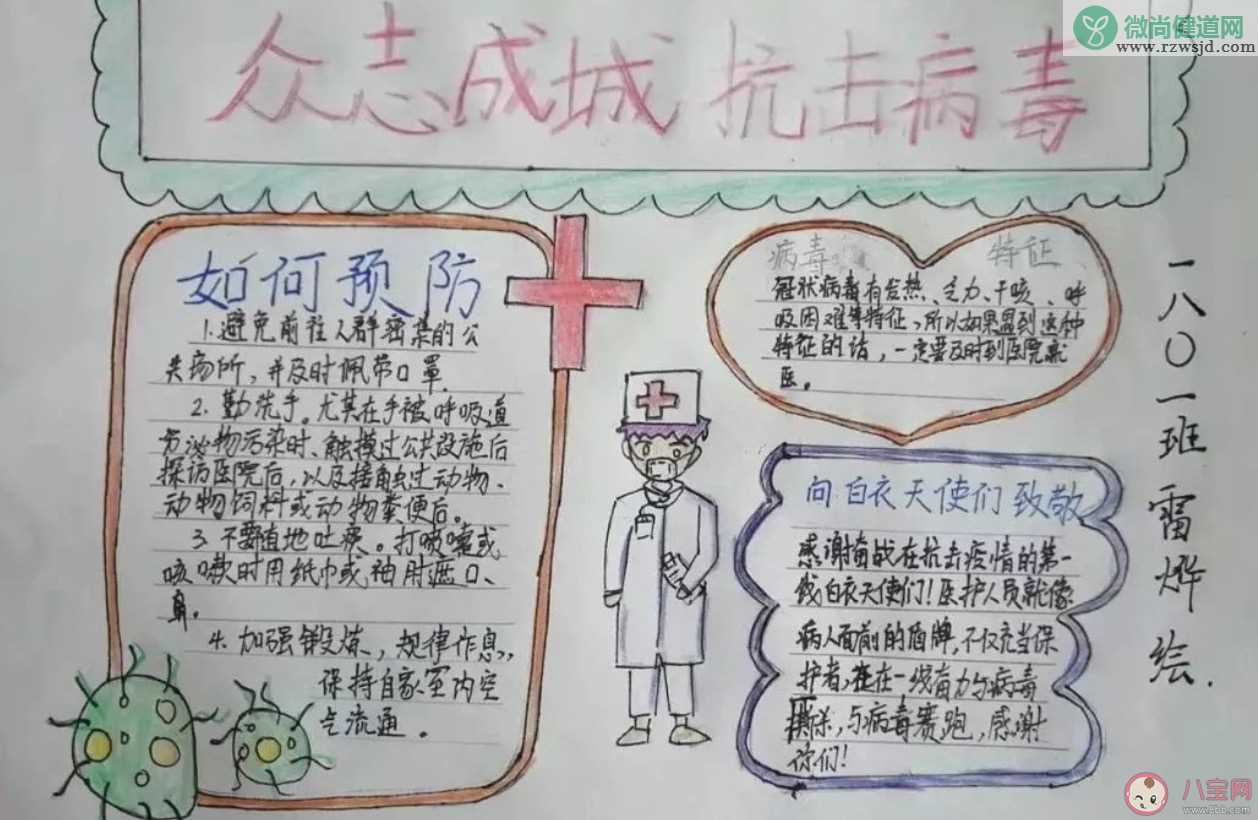 众志成城 抗击病毒
微尚健道网
www.rzwsjd.com
如何预防
1.避免前往人群密集的公
共场所,并及时佩带口罩.
2.勤洗手。尤其在手被呼吸道
分泌物污染时、触摸过公共设施后
探访医院后,以及接触过动物、
动物饲料或动物粪便后。
3.不要随地吐痰。打喷嚏或
咳嗽时用纸巾或袖肘遮口、
鼻.
4.加强锻炼,规律作息,
保持自家室内空
气流通。
病毒 特征
冠状病毒有发热、乏力、干咳、呼
吸困难等特征,所以如果遇到这种
特征的话,一定要及时到医院就
医。
向白衣天使们致敬
感谢奋战在抗击疫情的第一
线白衣天使们!医护人员就像
病人面前的盾牌,不仅充当保
护者,在一线奋力与病毒
厮杀,与病毒赛跑,感谢
你们!
一八〇一班雷烨绘.
八宝网